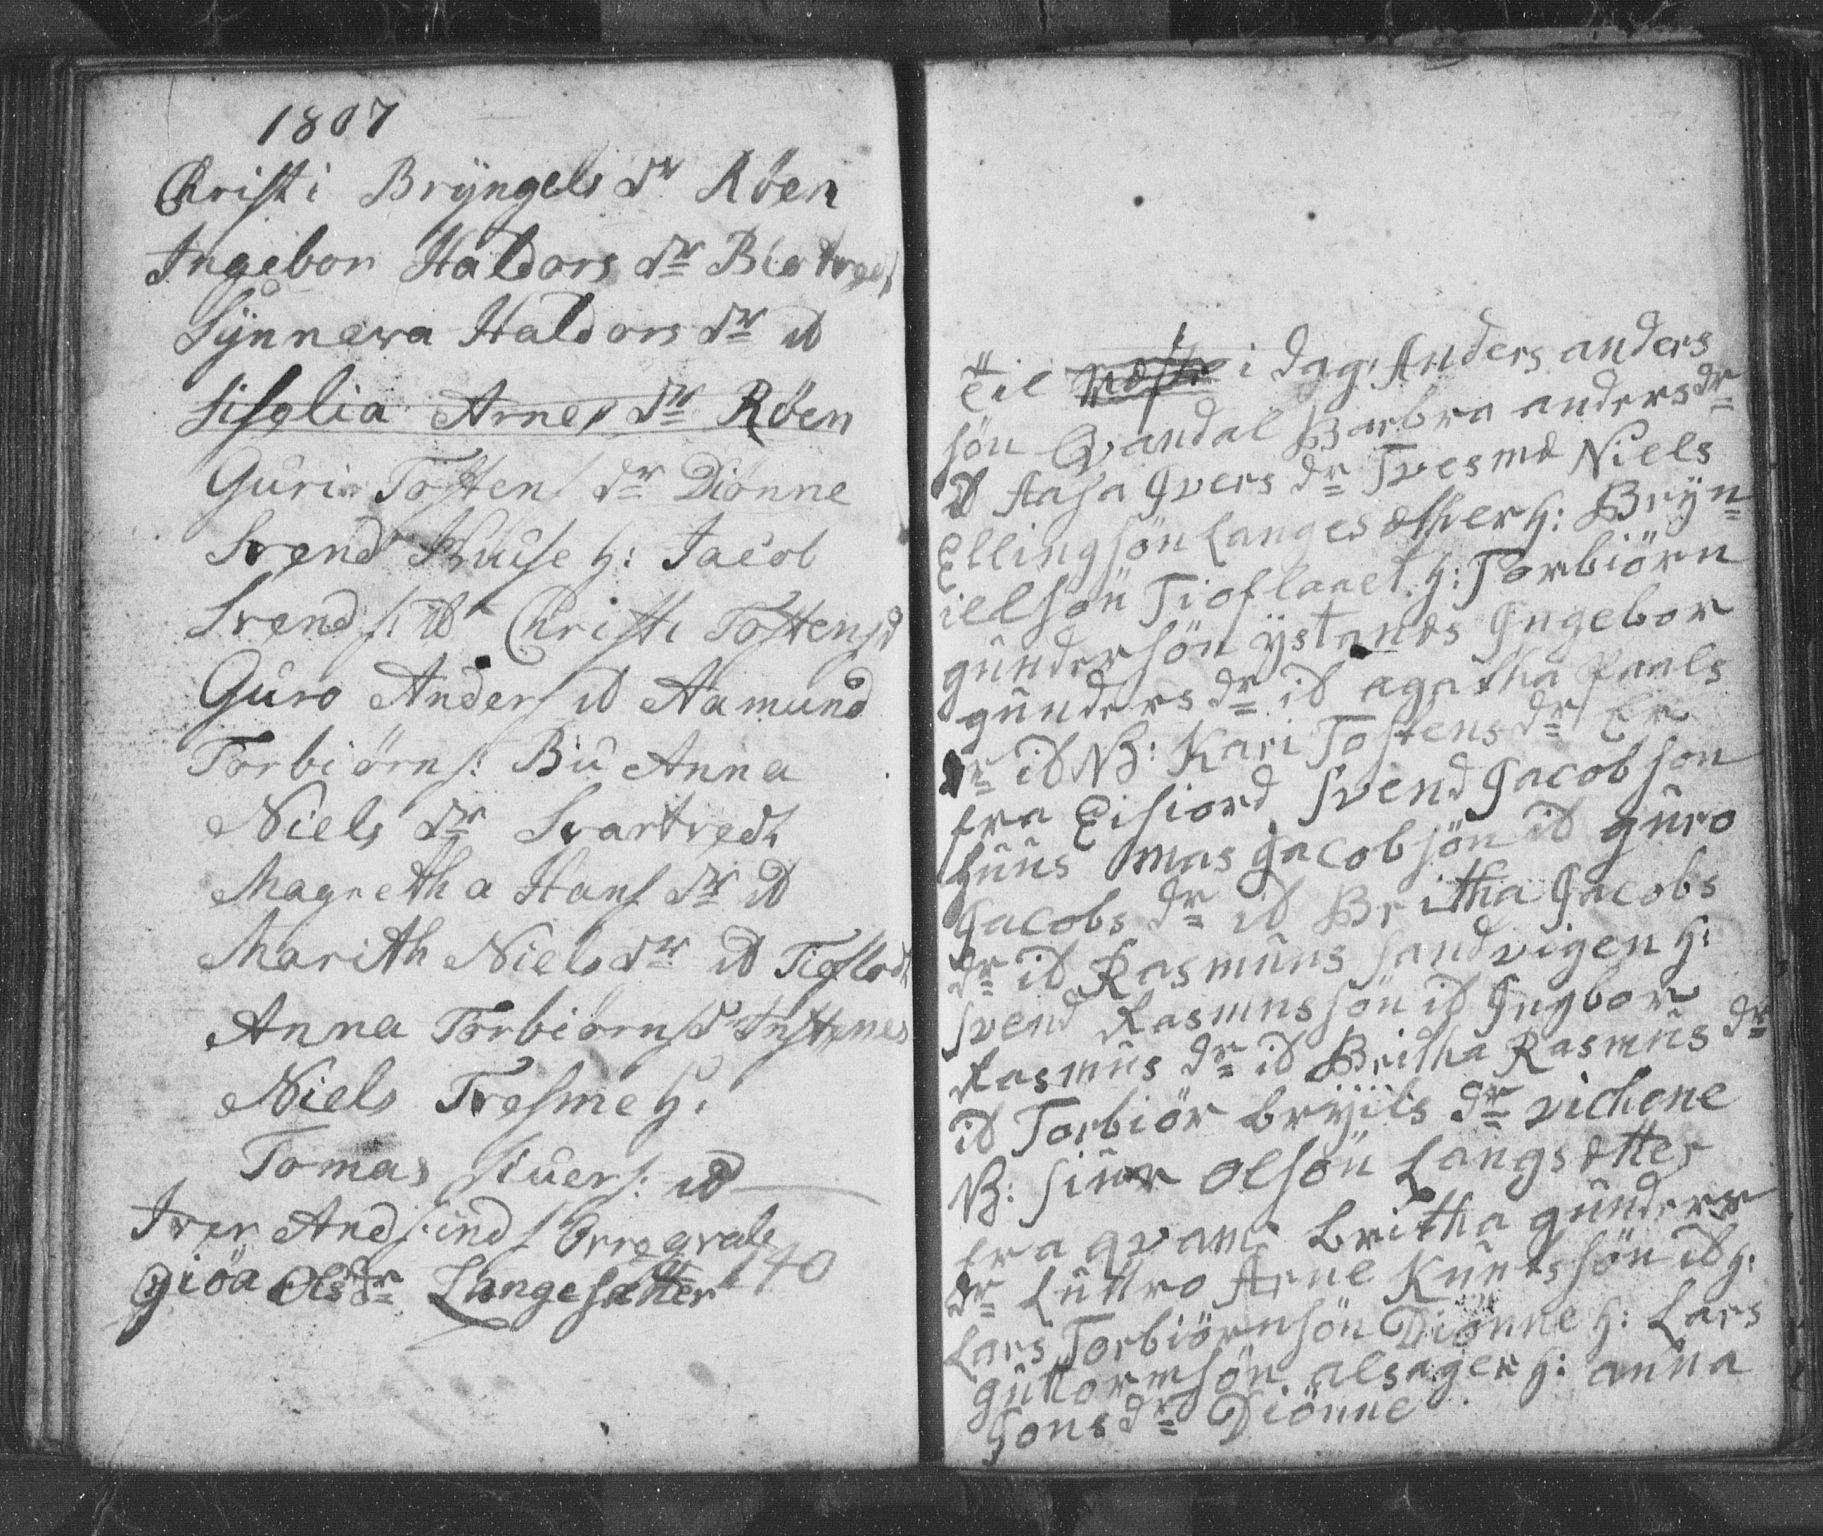 1807
Christi Bryngels dr Røen
Ingebor Haldors dr Biotvedt
Synneva Haldors dr id
Sisglia Arnes dr Røen
Guri Tosten s dr Diønne
Svend Huuse h: Jacob
Svend s: id Christi Tostensd
Guro Anders id Aamund
Torbiørns: Bu Anna
Niels dr Svartvedt
Magretha Hans dr id
Marith Niels dr id Tioflodt
Anna Torbiørnsd
Niels Tvesme h:
Tomas siuers: id
Iver Ands: inds
giøa Ols dr Langesætter 140
til i dag: Anders anders
søn Qvandal Barbra anders dr
id Aasa Ivers dr Tvesme Niels
Ellingsøn Langesætther h: Bryn
ielsøn Tioflaaet h: Torbiørn
gundersøn ystanes Ingebor
gunders dr id agatha Paals
dr id NB: Kari Tostens dr Er
fra Eisiord Svend Jacobson
huus mas Jacobsøn id guro
Jacobs dr id Britha Jacobs
dr id Rasmuns sandvigen h:
Svend Rasmussøn id Ingbor
Rasmus dr id Britha Rasmus dr
id Torbiør bryils dr vichene
NB: siur olsøn Langsætter
fra qvam: britha gunders
dr Luttro Arne Knutssøn id h:
Lars Torbiørnsøn Diønne h: Lars
guttormsøn alsager h: anna
Jons dr Diønne